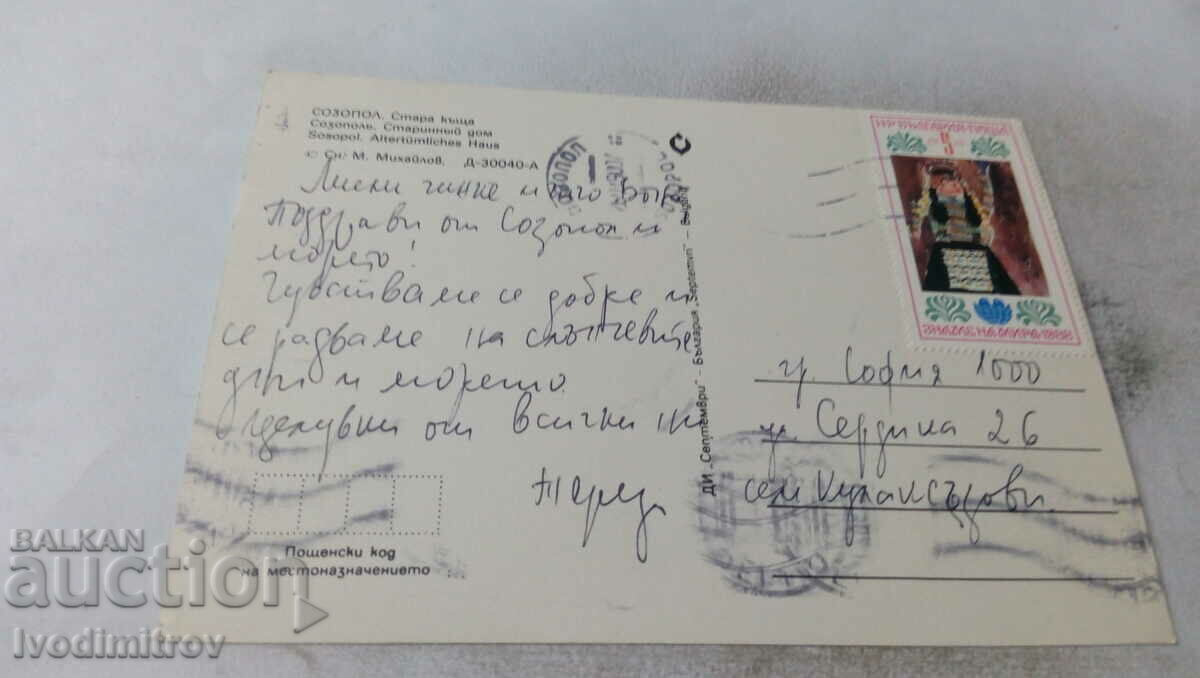 СОЗОПОЛ. Стара къща
Созополь. Старинный дом
Sosopol. Altertümliches Haus
© Сн. М. Михайлов, Д-30040-А
чинке и
Поздрави от Созопол и
морето!
Чувстваме се добре и
се радваме на слънчевите
дни и морето.
Целувки от всички ни
Пощенски код
на местоназначението
ДИ „Септември" – България „Septemvri" – Bulgaria
НР БЪЛГАРИЯ·ПОЩА
5
ЗНАМЕ НА МИРА·1988
гр. София 1000
ул. Сердика 26
сем.
BALKAN
auction
Ivodimitrov